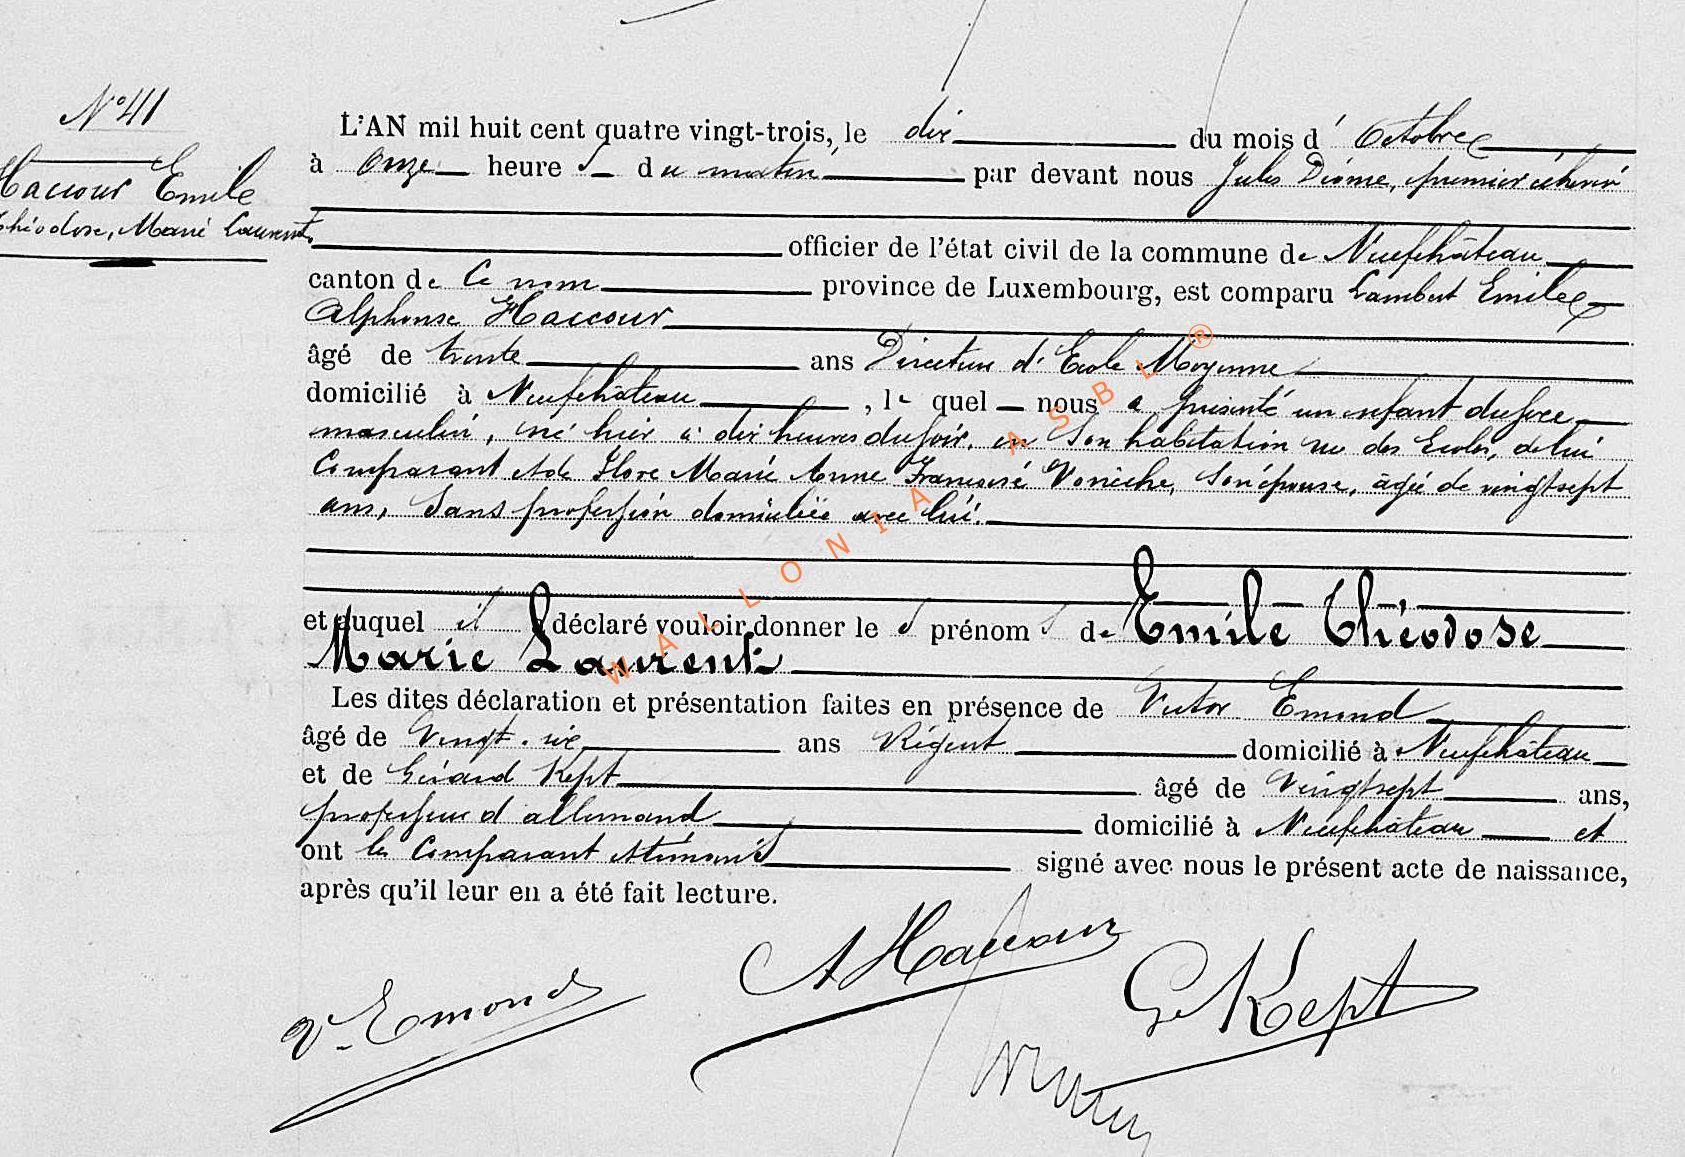 N° 41
Haccour Emile
Théodose, Marie Laurent.
L'AN mil huit cent quatre vingt-trois, le dix du mois d' Octobre
à Onze heure s du matin par devant nous Jules Diome, premier échevin
officier de l'état civil de la commune de Neufchâteau
canton de Ce nom province de Luxembourg, est comparu Lambert Emile
Alphonse Haccour
âgé de trente ans Directeur d'Ecole Moyenne
domicilié à Neufchâteau, le quel nous a présenté un enfant du sexe
masculin, né hier à dix heures du soir, en son habitation rue des Ecoles, de lui
Comparant et de Flore Marie Anne Françoise Vonèche, son épouse, âgée de vingt sept
ans, Sans profession domiciliée avec lui.
et auquel il déclaré vouloir donner le s prénom s de Emile Théodose
Marie Laurent
Les dites déclaration et présentation faites en présence de Victor Emond
âgé de Vingt-six ans Régent domicilié à Neufchâteau
et de Gérard Kept âgé de Vingt sept ans,
professeur d'allemand domicilié à Neufchâteau et
ont les Comparant et témoins signé avec nous le présent acte de naissance,
après qu'il leur en a été fait lecture.
A Haccour
V. Emond
G Kept
WALLONIA ASBL ®